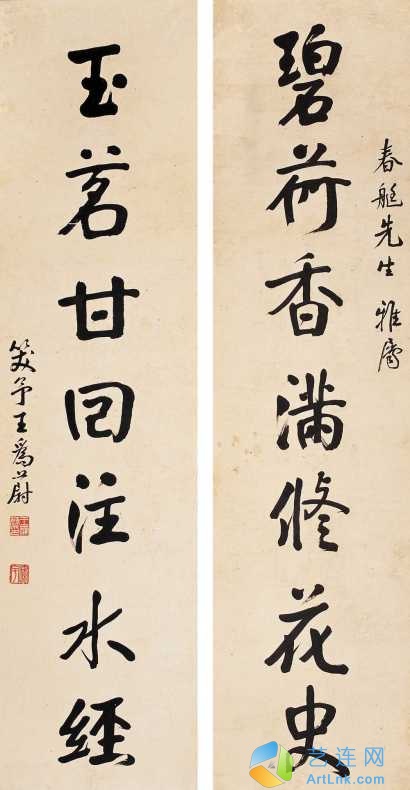 碧荷香滿修花史
春艇先生 雅屬
玉茗甘回注水經
王爲蔚
艺连网
ArtLink.com